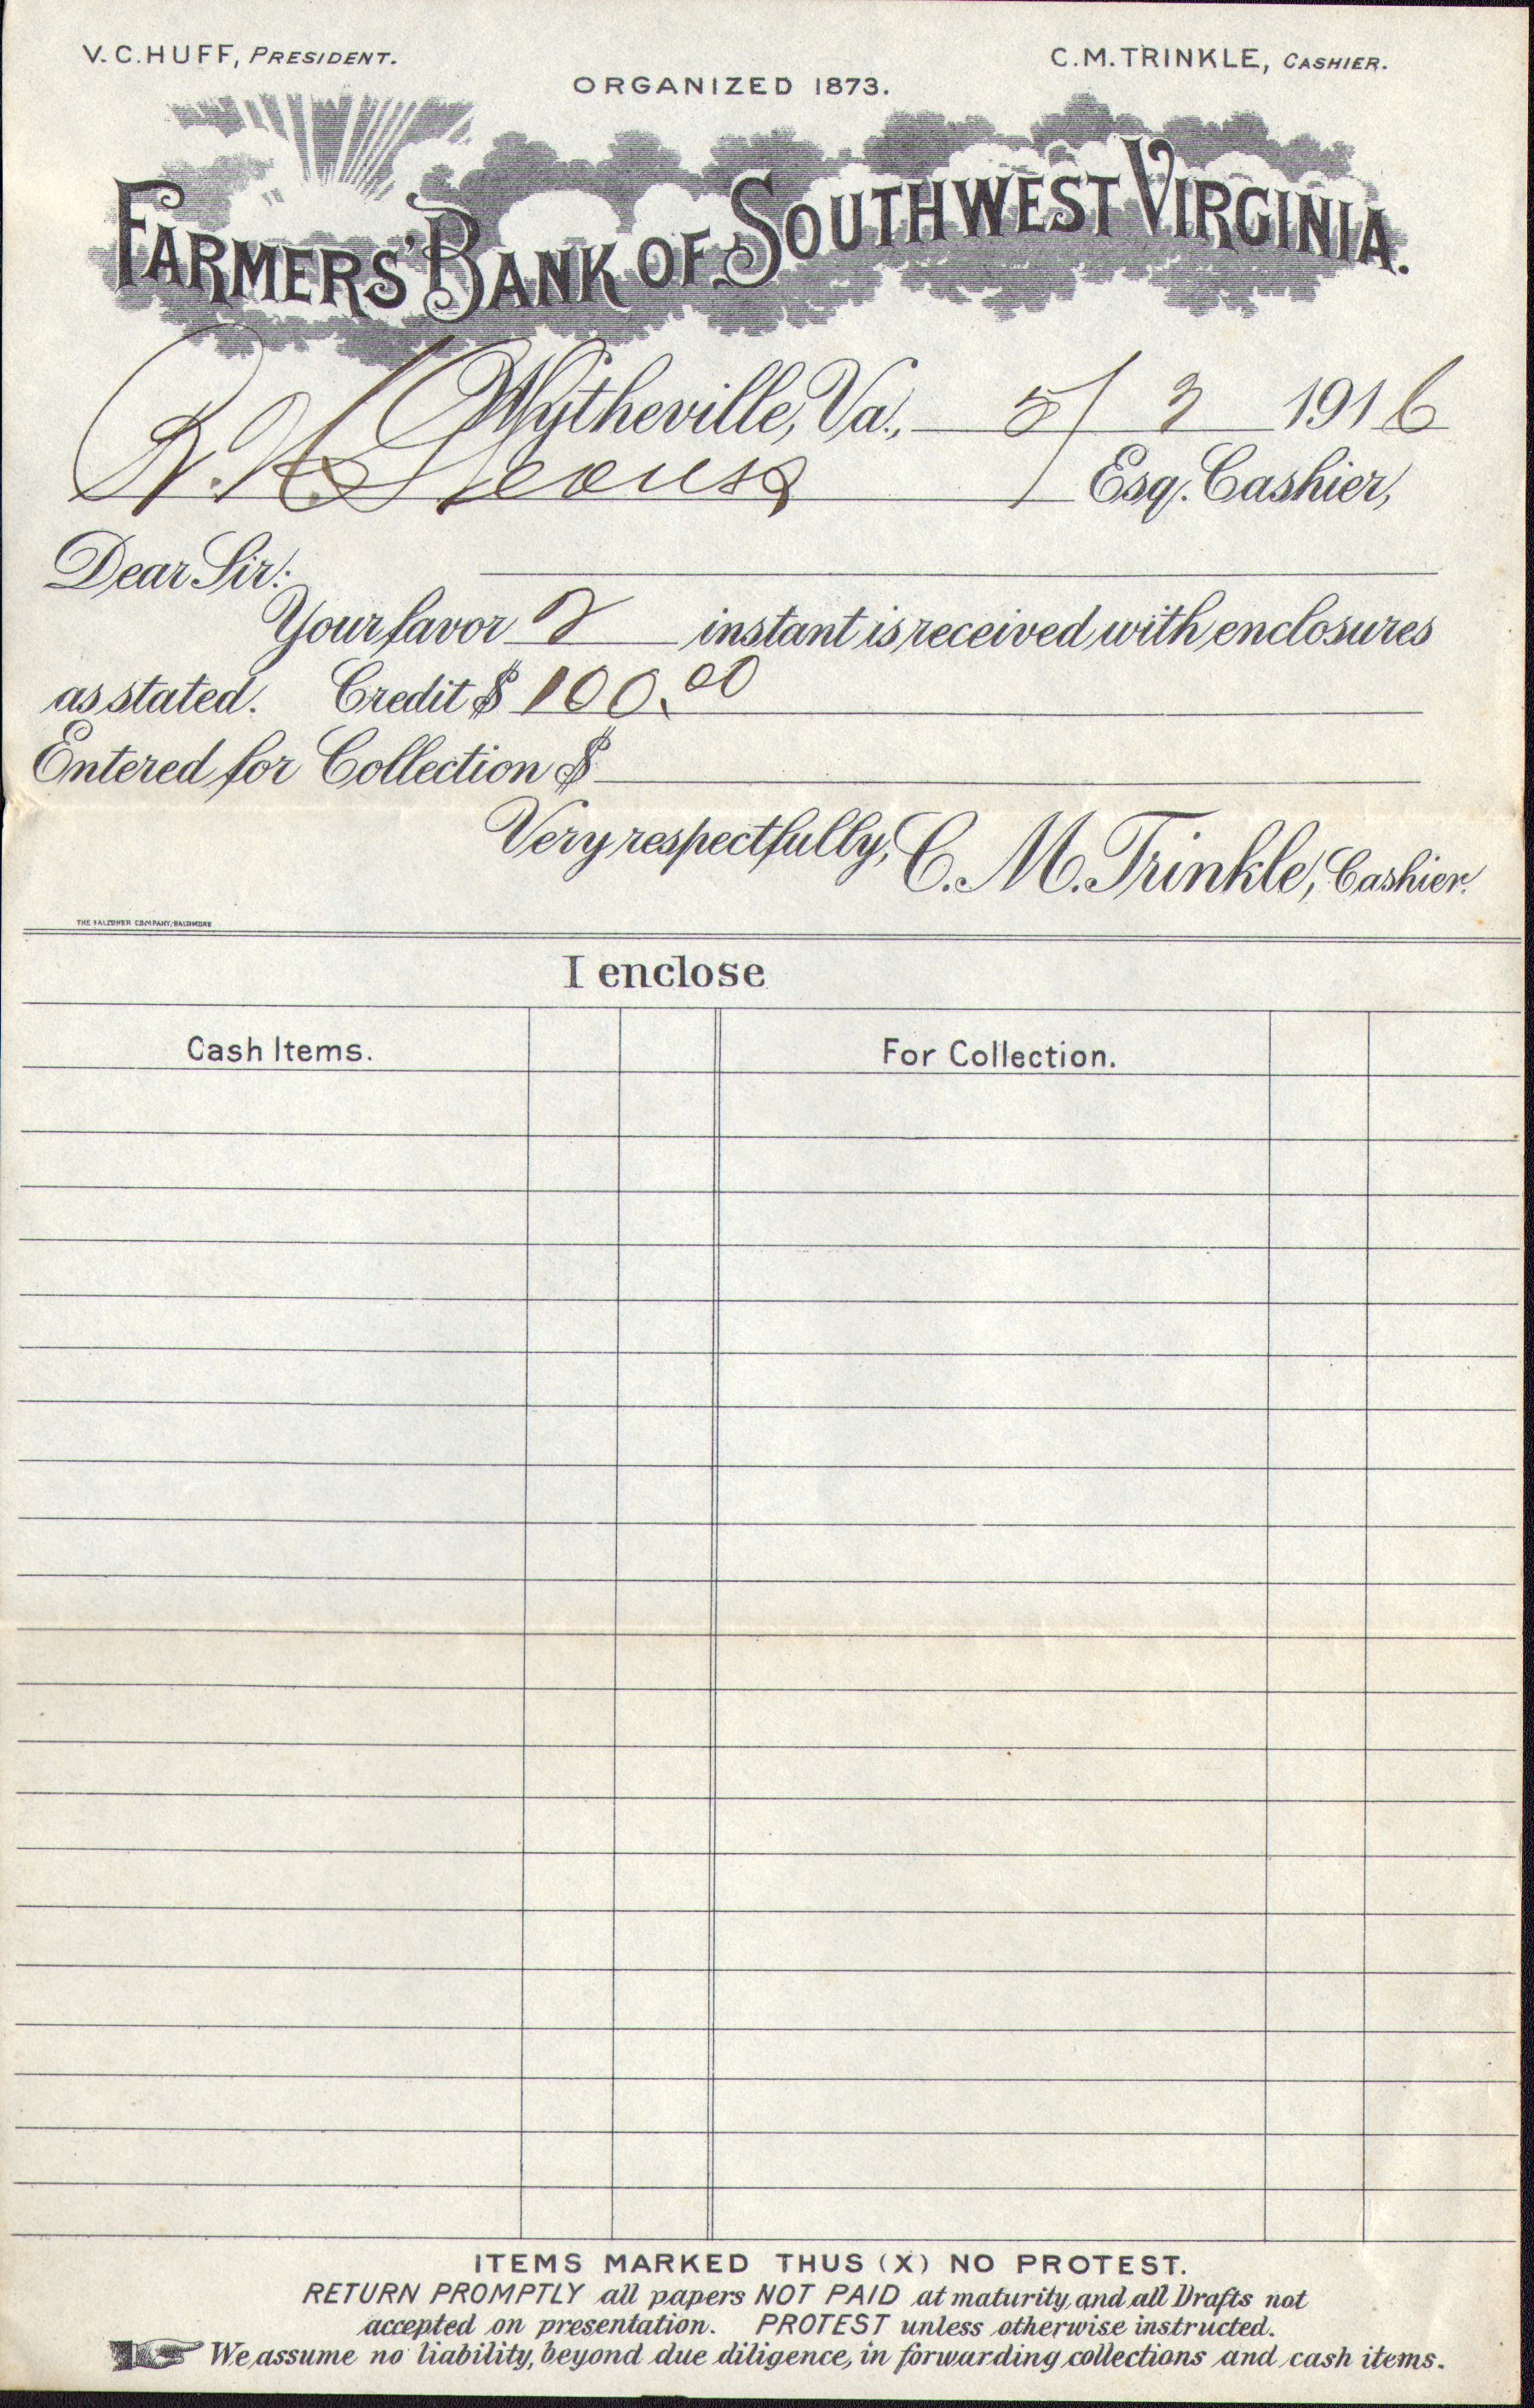 V. C. HUFF, PRESIDENT.
C. M. TRINKLE, CASHIER.
ORGANIZED 1873.
FARMERS' BANK OF SOUTHWEST VIRGINIA.
Wytheville, Va., 5/3 1916
R. H. Esq. Cashier,
Dear Sir:
Your favor 2 instant is received with enclosures
as stated. Credit $ 100.00
Entered for Collection $
Very respectfully, C. M. Trinkle, Cashier.
THE FALCONER COMPANY, BALTIMORE
I enclose
Cash Items.
For Collection.
ITEMS MARKED THUS (X) NO PROTEST.
RETURN PROMPTLY all papers NOT PAID at maturity and all Drafts not
accepted on presentation. PROTEST unless otherwise instructed.
We assume no liability, beyond due diligence, in forwarding collections and cash items.